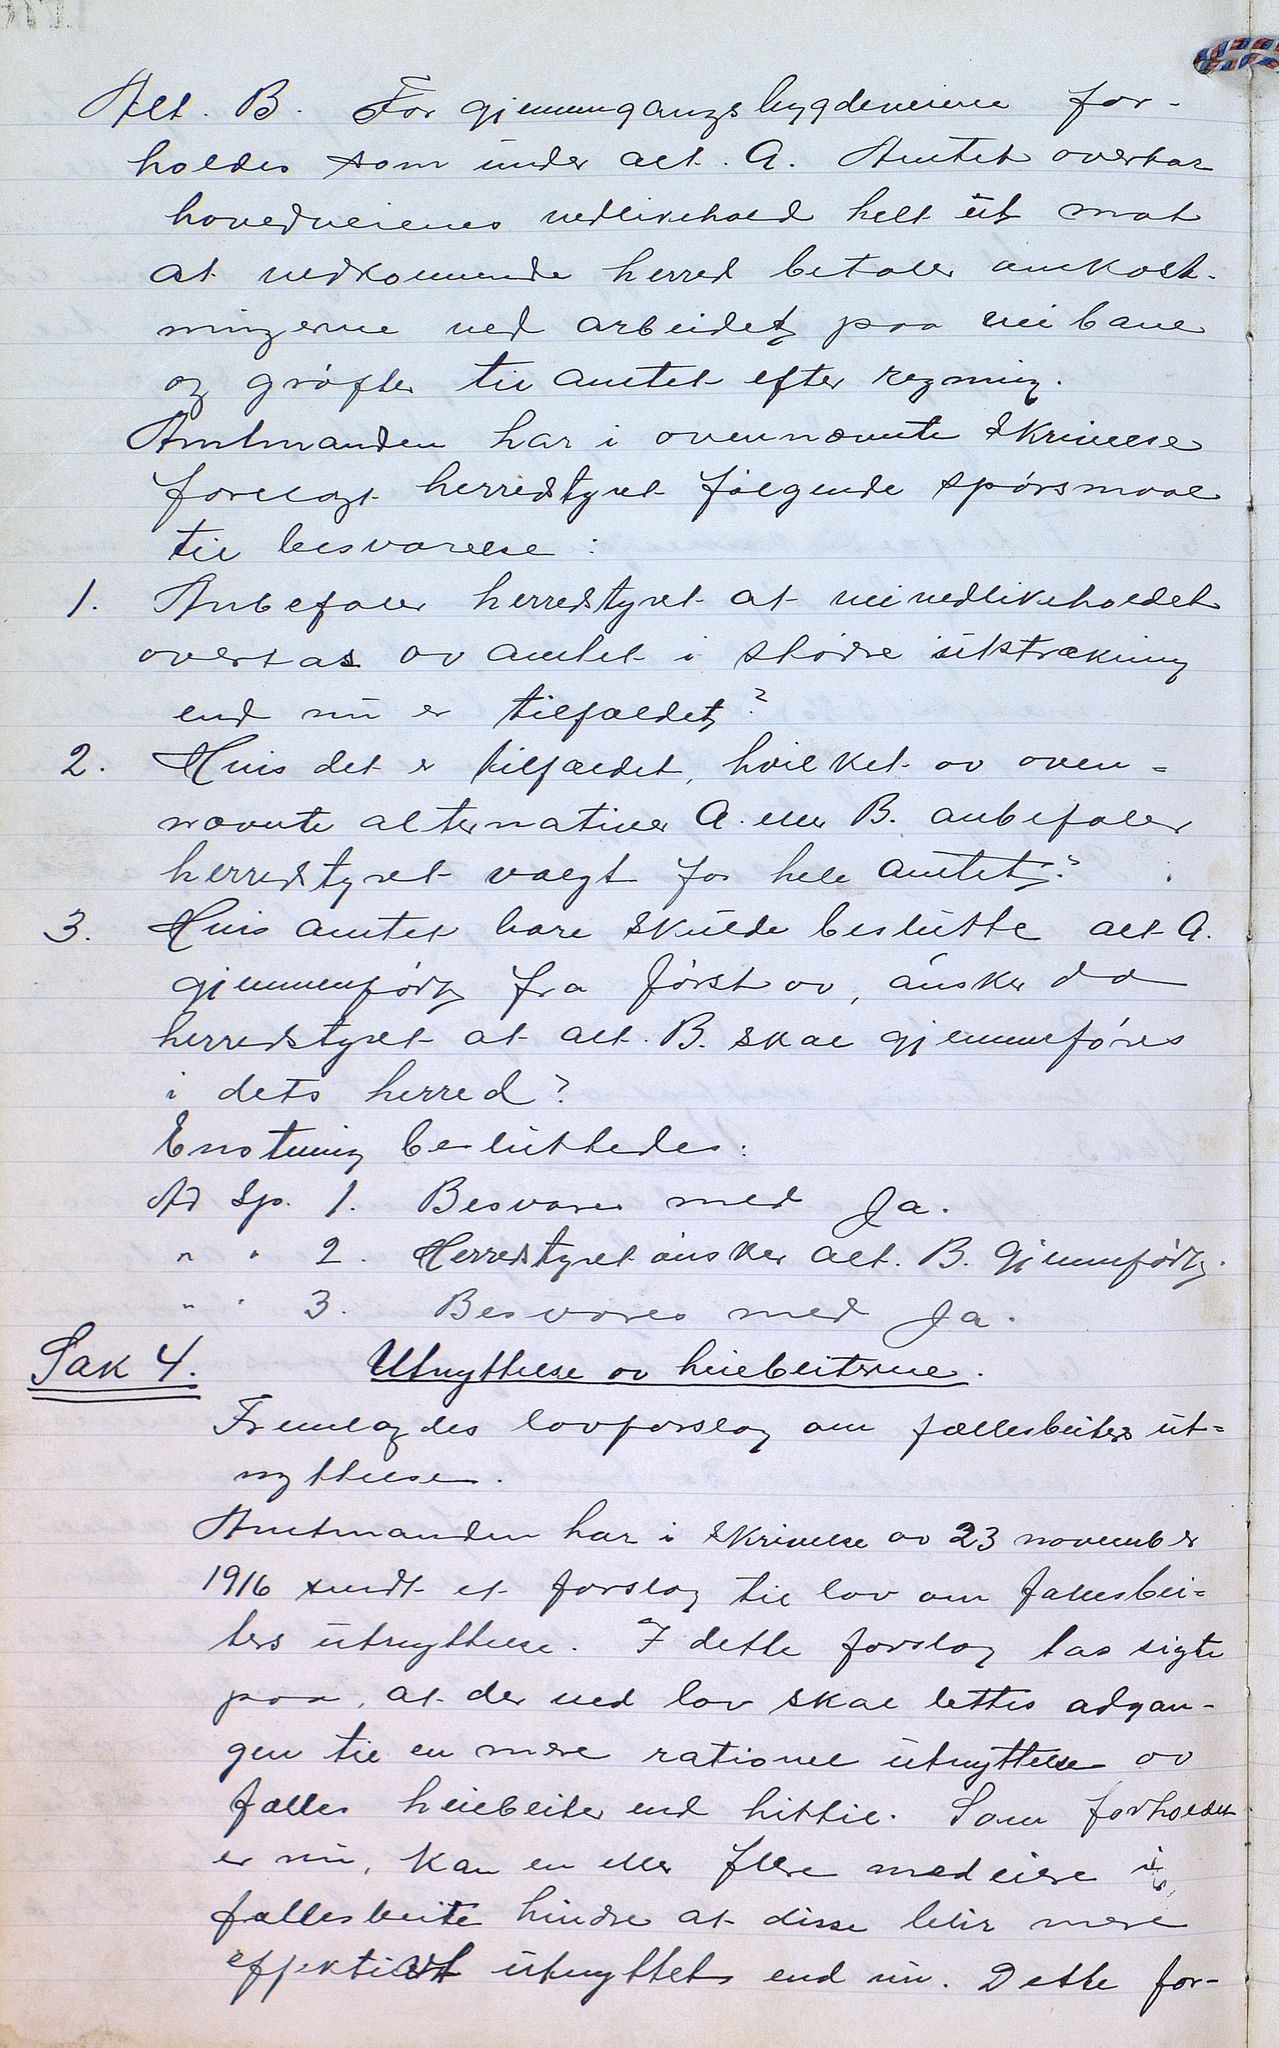 Alt. B. For gjennemgangsbygdeveiene for-
holdes som under alt. A. Amtet overtar
hovedveienes vedlikehold helt ut mot
at vedkommende herred betaler omkost-
ningerne ved arbeidet paa veibane
og grøfter til amtet efter regning.
Amtmanden har i ovennævnte skrivelse
forelagt herredstyret følgende spørsmaal
til besvarelse:
1. Anbefaler herredstyret at veivedlikeholdet
overtas av amtet i større utstrækning
end nu er tilfældet?
2. Hvis det er tilfældet, hvilket av oven-
nævnte alternativer A. eller B. anbefaler
herredstyret valgt for hele amtet?
3. Hvis amtet bare skulde beslutte alt. A.
gjennemført fra først av, ønsker da
herredstyret at alt. B. skal gjennemføres
i dets herred?
Enstemig besluttedes:
Ad Sp. 1. Besvares med Ja.
" " 2. Herredstyret ønsker alt. B. gjennemført.
" " 3. Besvares med Ja.
Sak 4. Utnyttelse av heiebeiterne.
Fremlagdes lovforslag om fællesbeiters ut-
nyttelse.
Amtmanden har i skrivelse av 23 november
1916 sendt et forslag til lov om fællesbei-
ters utnyttelse. I dette forslag tas sigte
paa, at der ved lov skal lettes adgan-
gen til en mere rationel utnyttelse av
fælles heiebeiter end hittil. Som forholdet
er nu, kan en eller flere medeiere i
fællesbeite hindre at disse blir mere
effektivt utnyttet end nu. Dette for-